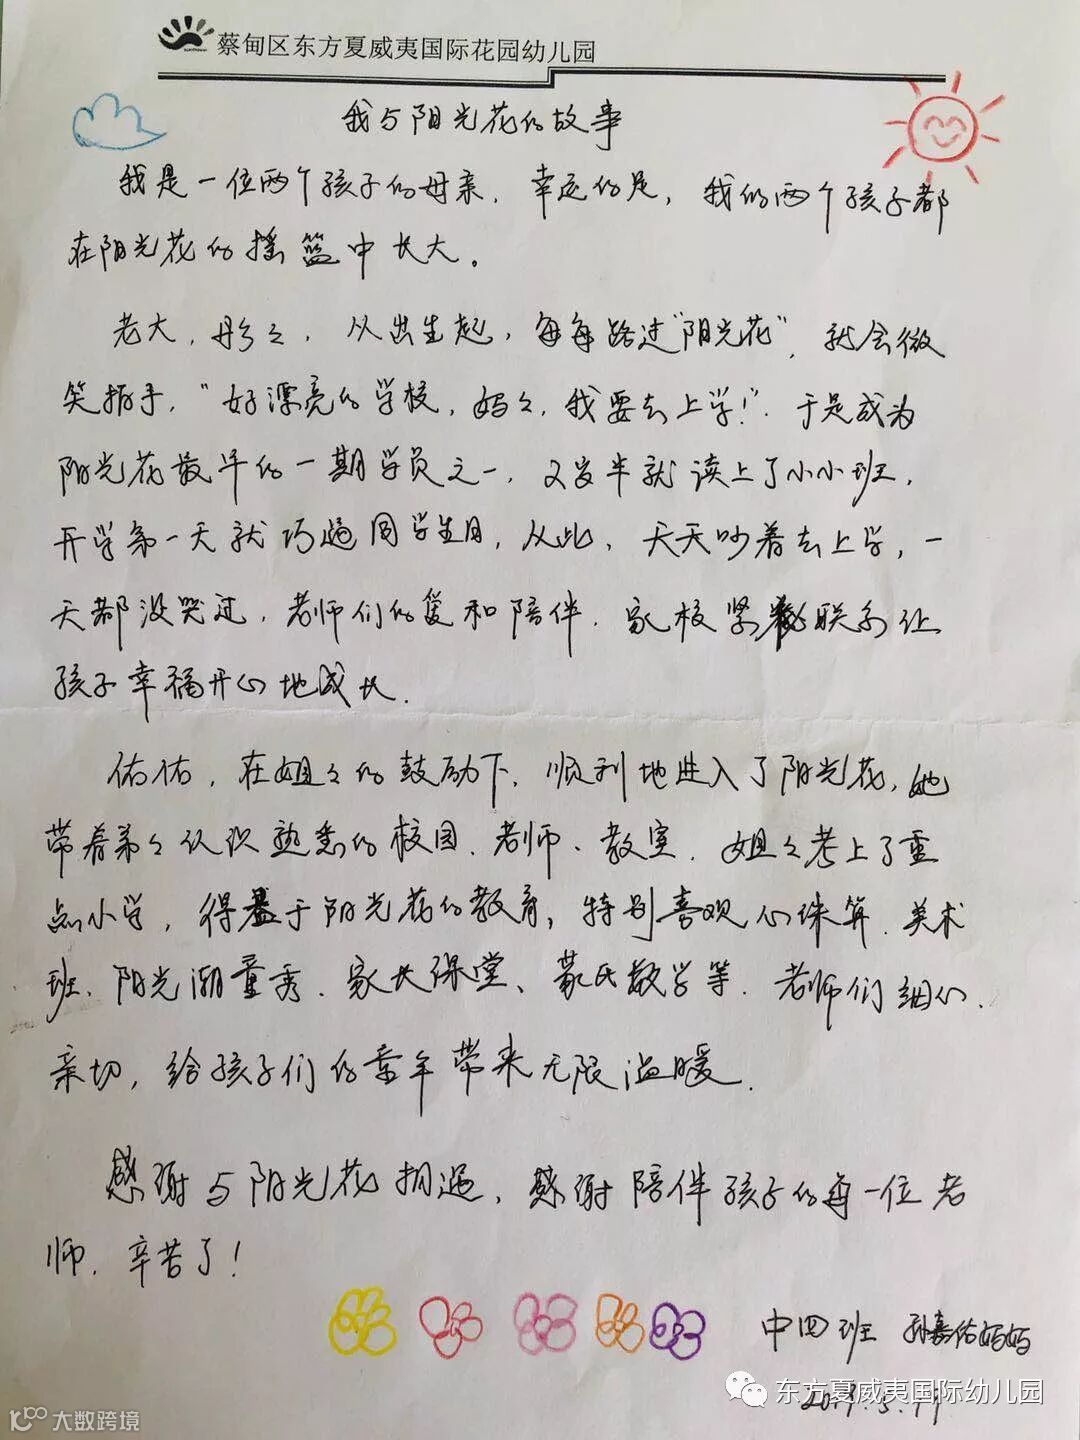 蔡甸区东方夏威夷国际花园幼儿园
我与阳光花的故事
我是一位两个孩子的母亲.幸运的是,我的两个孩子都
在阳光花的摇篮中长大。
老大,彤々,从出生起,每每路过"阳光花",就会微
笑招手,"好漂亮的学校,妈々,我要去上学!".于是成为
阳光花最早的一期学员之一,2岁半就读上了小小班,
开学第一天就巧遇同学生日,从此,天天吵着去上学,一
天都没哭过,老师们的爱和陪伴.家校紧密联系让
孩子幸福开心地成长.
佑佑,在姐々的鼓励下,顺利地进入了阳光花,她
带着弟々认识熟悉的校园、老师、教室.姐々考上了重
点小学,得益于阳光花的教育,特别喜欢心珠算.美术
班、阳光潮童秀、家长课堂、蒙氏数学等.老师们细心、
亲切,给孩子们的童年带来无限温暖.
感谢与阳光花相遇,感谢陪伴孩子的每一位老
师.辛苦了!
中四班 孙嘉佑妈妈
东方夏威夷国际幼儿园
大数跨境